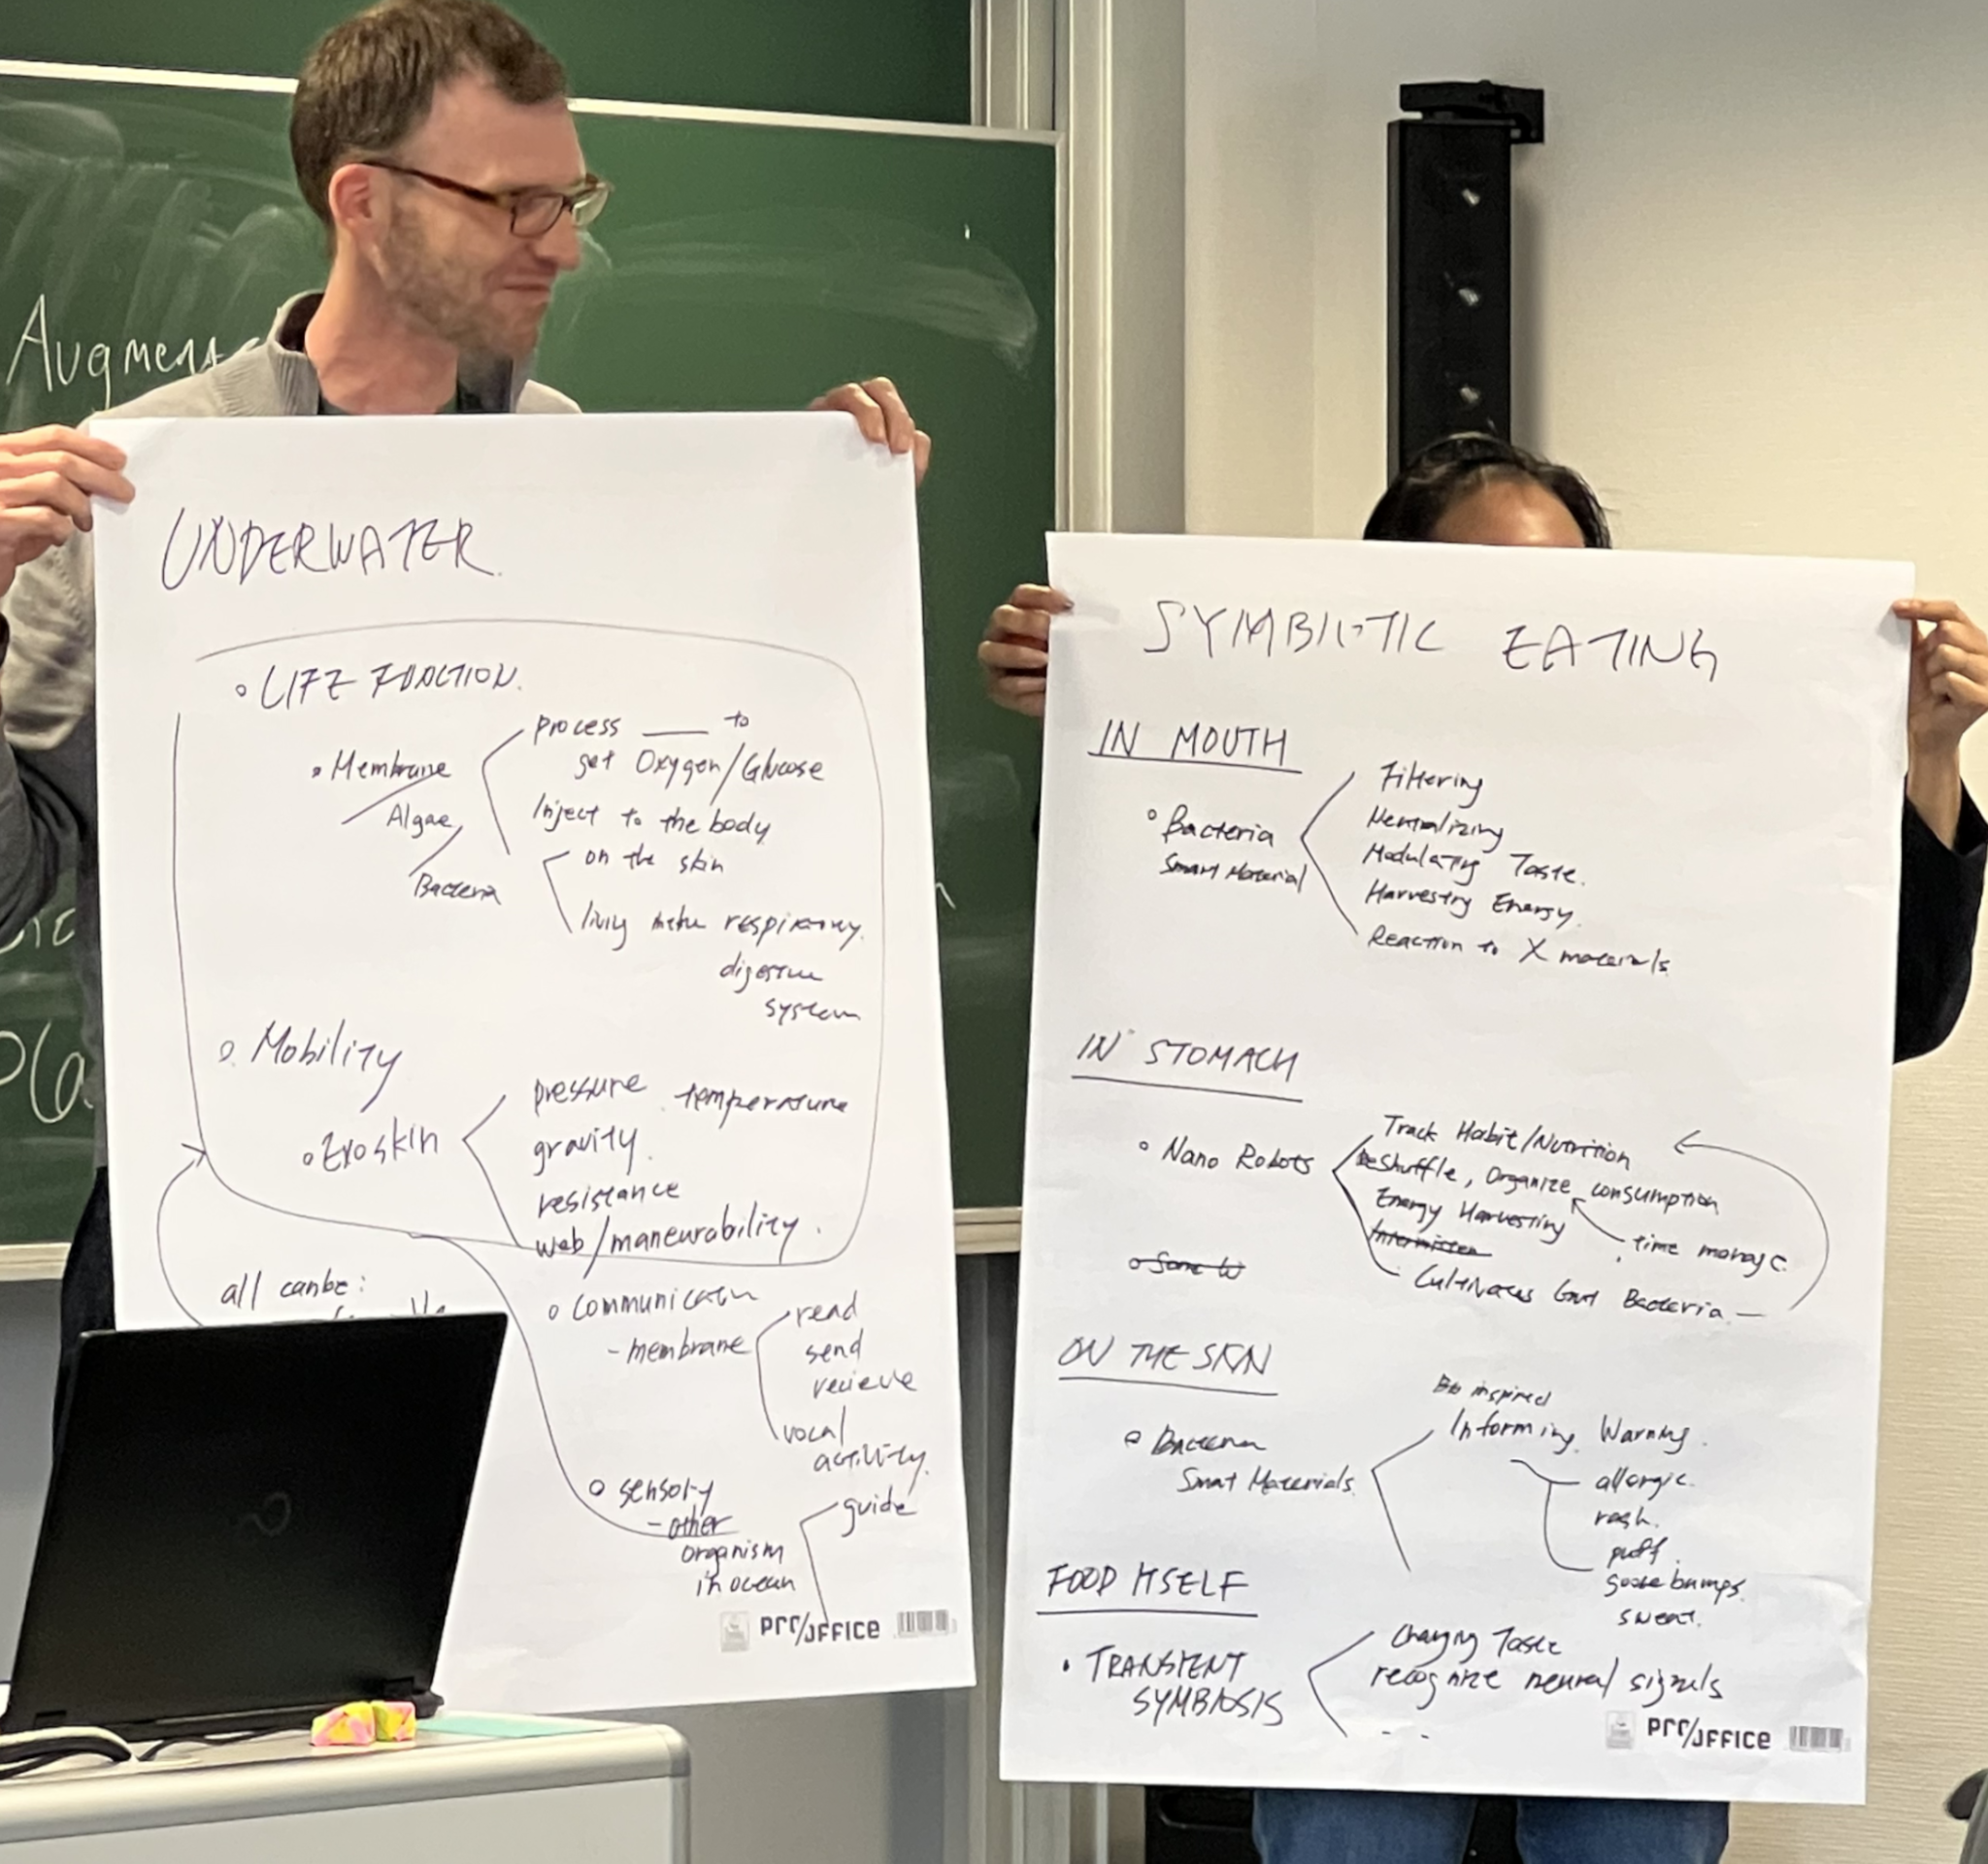 UNDERWATER.
LIFE FUNCTION.
Membrane
Algae
Bacteria
process ____ to
get Oxygen/Glucose
Inject to the body
on the skin
respiratory
digestive
system
Mobility
Exoskin
pressure temperature
gravity.
resistance
web/maneurability.
all can be:
communication
- membrane
read
send
recieve
vocal
activity.
sensory
- other
organism
in ocean
guide
OFFICE
SYMBIOTIC EATING
IN MOUTH
Bacteria
Smart Material
Filtering
Neutralizing
Modulating Taste.
Harvesting Energy.
Reaction to X materials
IN STOMACH
Nano Robots
Track Habit/Nutrition
Reshuffle, Organize consumption
Energy Harvesting
time manage
Cultivates Gut Bacteria
ON THE SKIN
Bacteria
Smart Materials
Bio inspired
Informing. Warning.
allergic.
rash.
puff.
goosebumps.
sweat.
FOOD ITSELF
TRANSIENT
SYMBIOSIS
Changing Taste
recognize neural signals
OFFICE
Augment